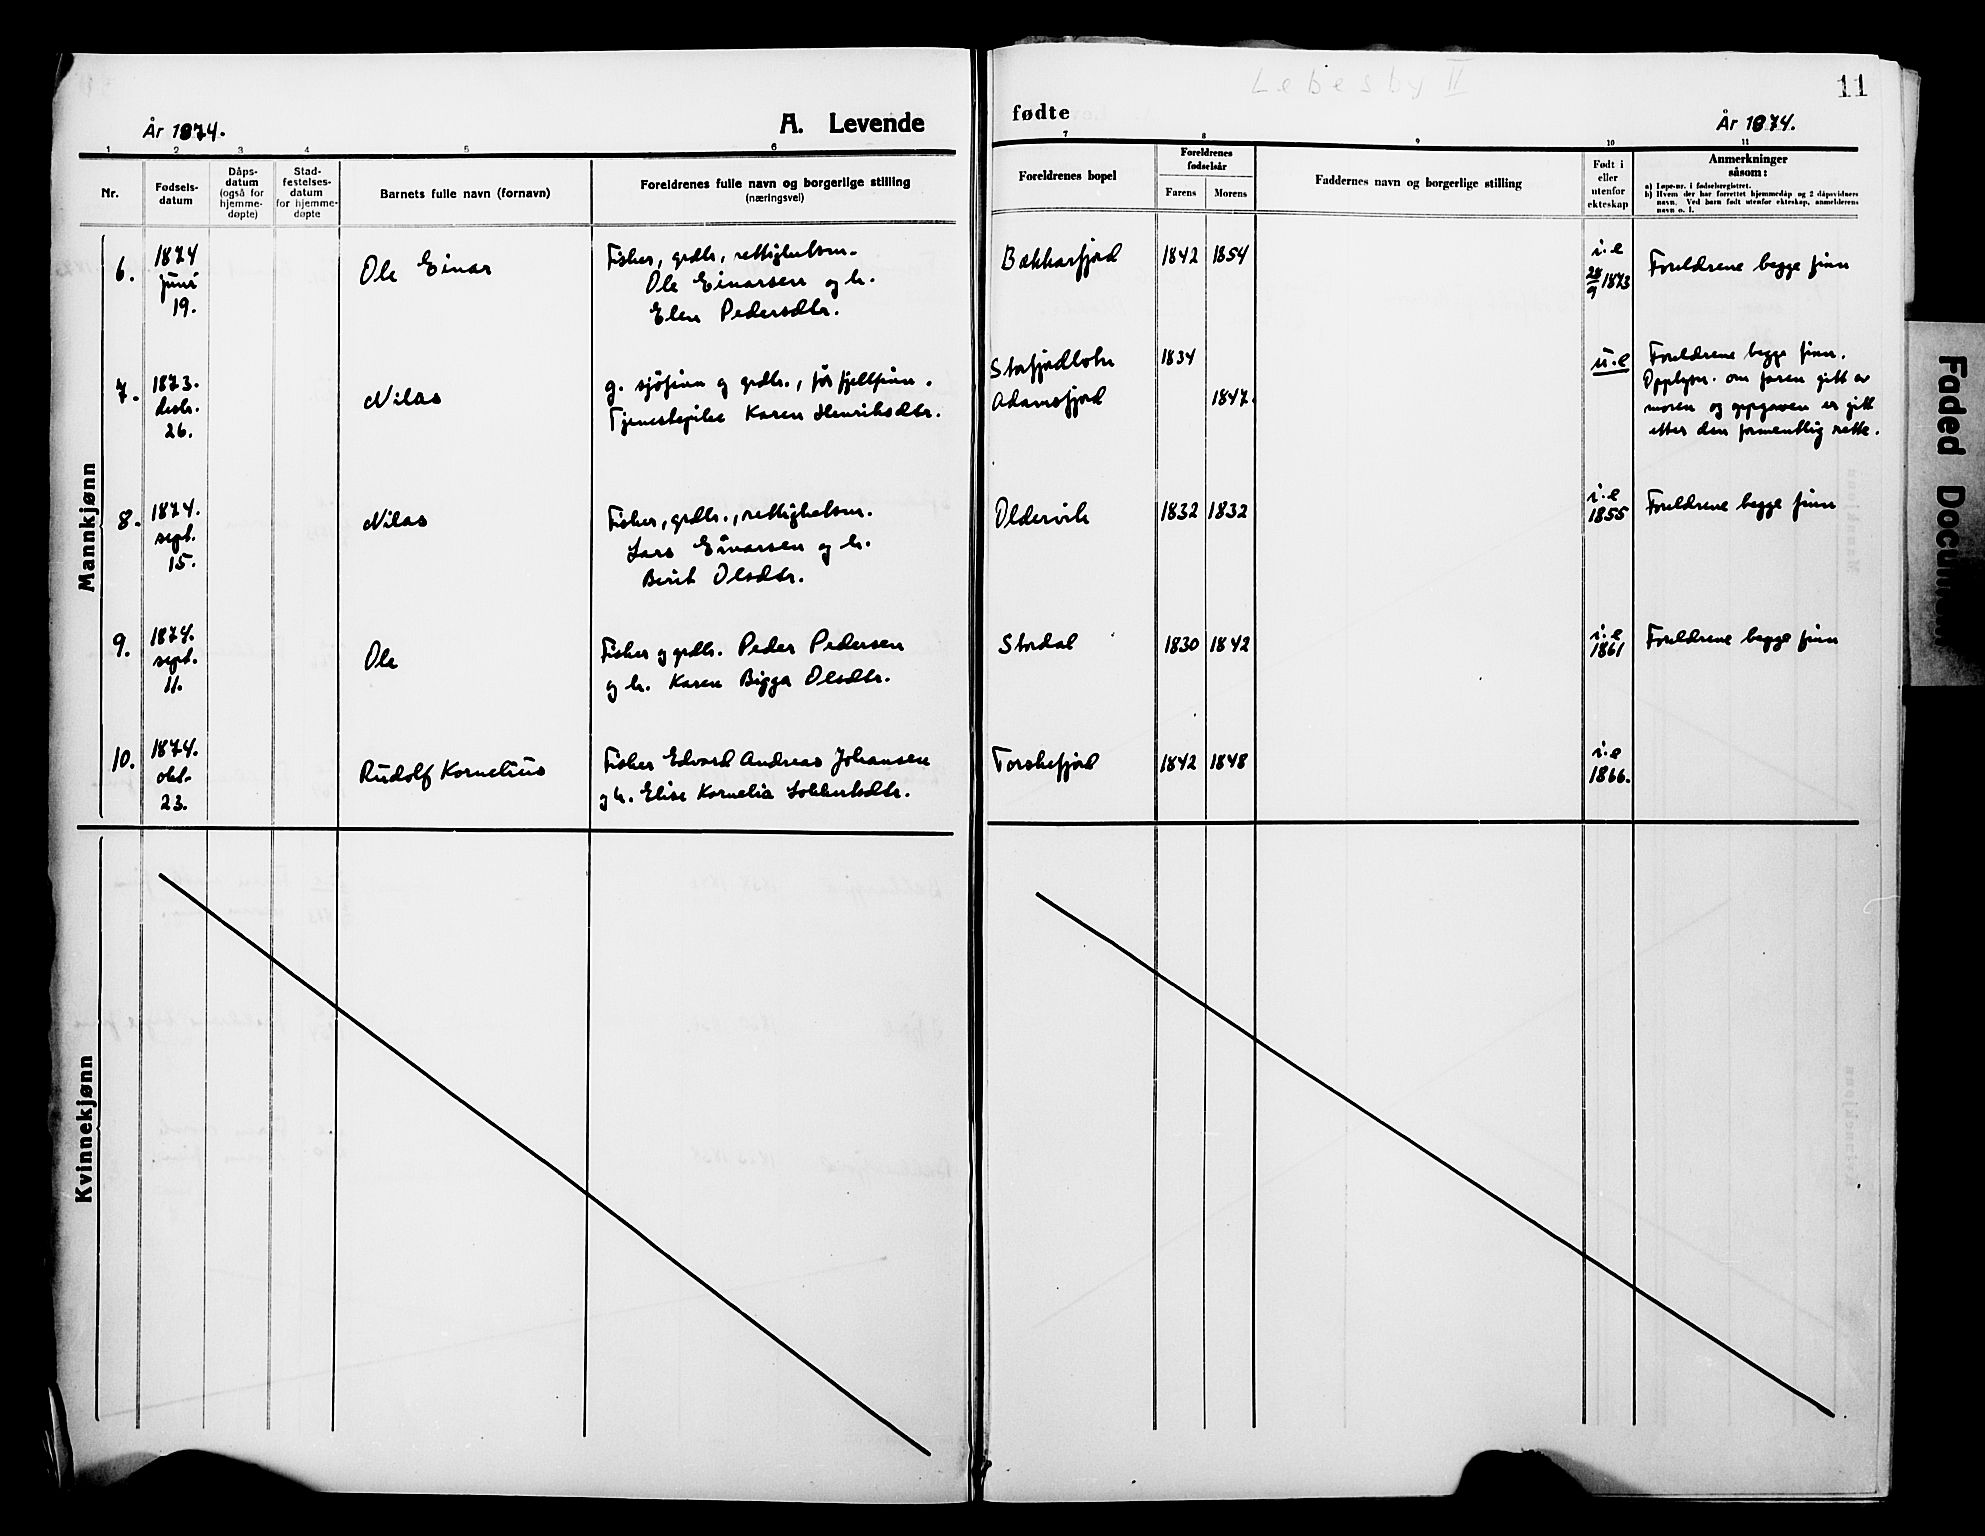 Lebesby II
11
År 1874.
A. Levende
fødte
År 1874.
1 2 3 4 5 6 7 8 9 10 11
Nr.
Fødsels-
datum
Dåps-
datum
(også for
hjemme-
døpte)
Stad-
festelses-
datum
for hjemme-
døpte
Barnets fulle navn (fornavn)
Foreldrenes fulle navn og borgerlige stilling
(næringsvei)
Foreldrenes bopel
Foreldrenes
fødselsår
Farens Morens
Faddernes navn og borgerlige stilling
Født i
eller
utenfor
ekteskap
Anmerkninger
såsom:
a) Løpe-nr. i fødselsregistret.
b) Hvem der har forrettet hjemmedåp og 2 dåpsvidners
navn. Ved barn født utenfor ekteskap, anmelderens
navn o. l.
Mannkjønn
6.
1874
juni
19.
Ole Einar
Fisker, grdbr., rettighetsm.
Ole Einarsen og h.
Elen Pedersdtr.
Bekkarfjord
1842 1854
i.e
28/9 1873
Foreldrene begge finn
7.
1873.
desbr.
26.
Nilas
g. sjøfinn og grdbr., før fjellfinn.
Tjenestepike Karen Henriksdtr.
Storfjordbotn
Adamsfjord
1834
1847.
u.e
Foreldrene begge finn.
Opplysn. om faren gitt av
moren og oppgaven er gitt
etter den formentlig rette.
8.
1874.
sept.
15.
Nilas
Fisker, grdbr., rettighetsm.
Lars Einarsen og h.
Berit Olsdtr.
Oldervik
1832 1832
i.e
1855
Foreldrene begge finn
9.
1874.
sept.
11.
Ole
Fisker og grdbr. Peder Pedersen
og h. Karen Bigga Olsdtr.
Stordal
1830 1842
i.e
1861
Foreldrene begge finn
10.
1874.
okt.
23.
Rudolf Kornelius
Fisker Edvard Andreas Johansen
og h. Elise Kornelia Lokkertsdtr.
Torskefjord
1842 1848
i.e
1866.
Kvinnekjønn
Faded Document